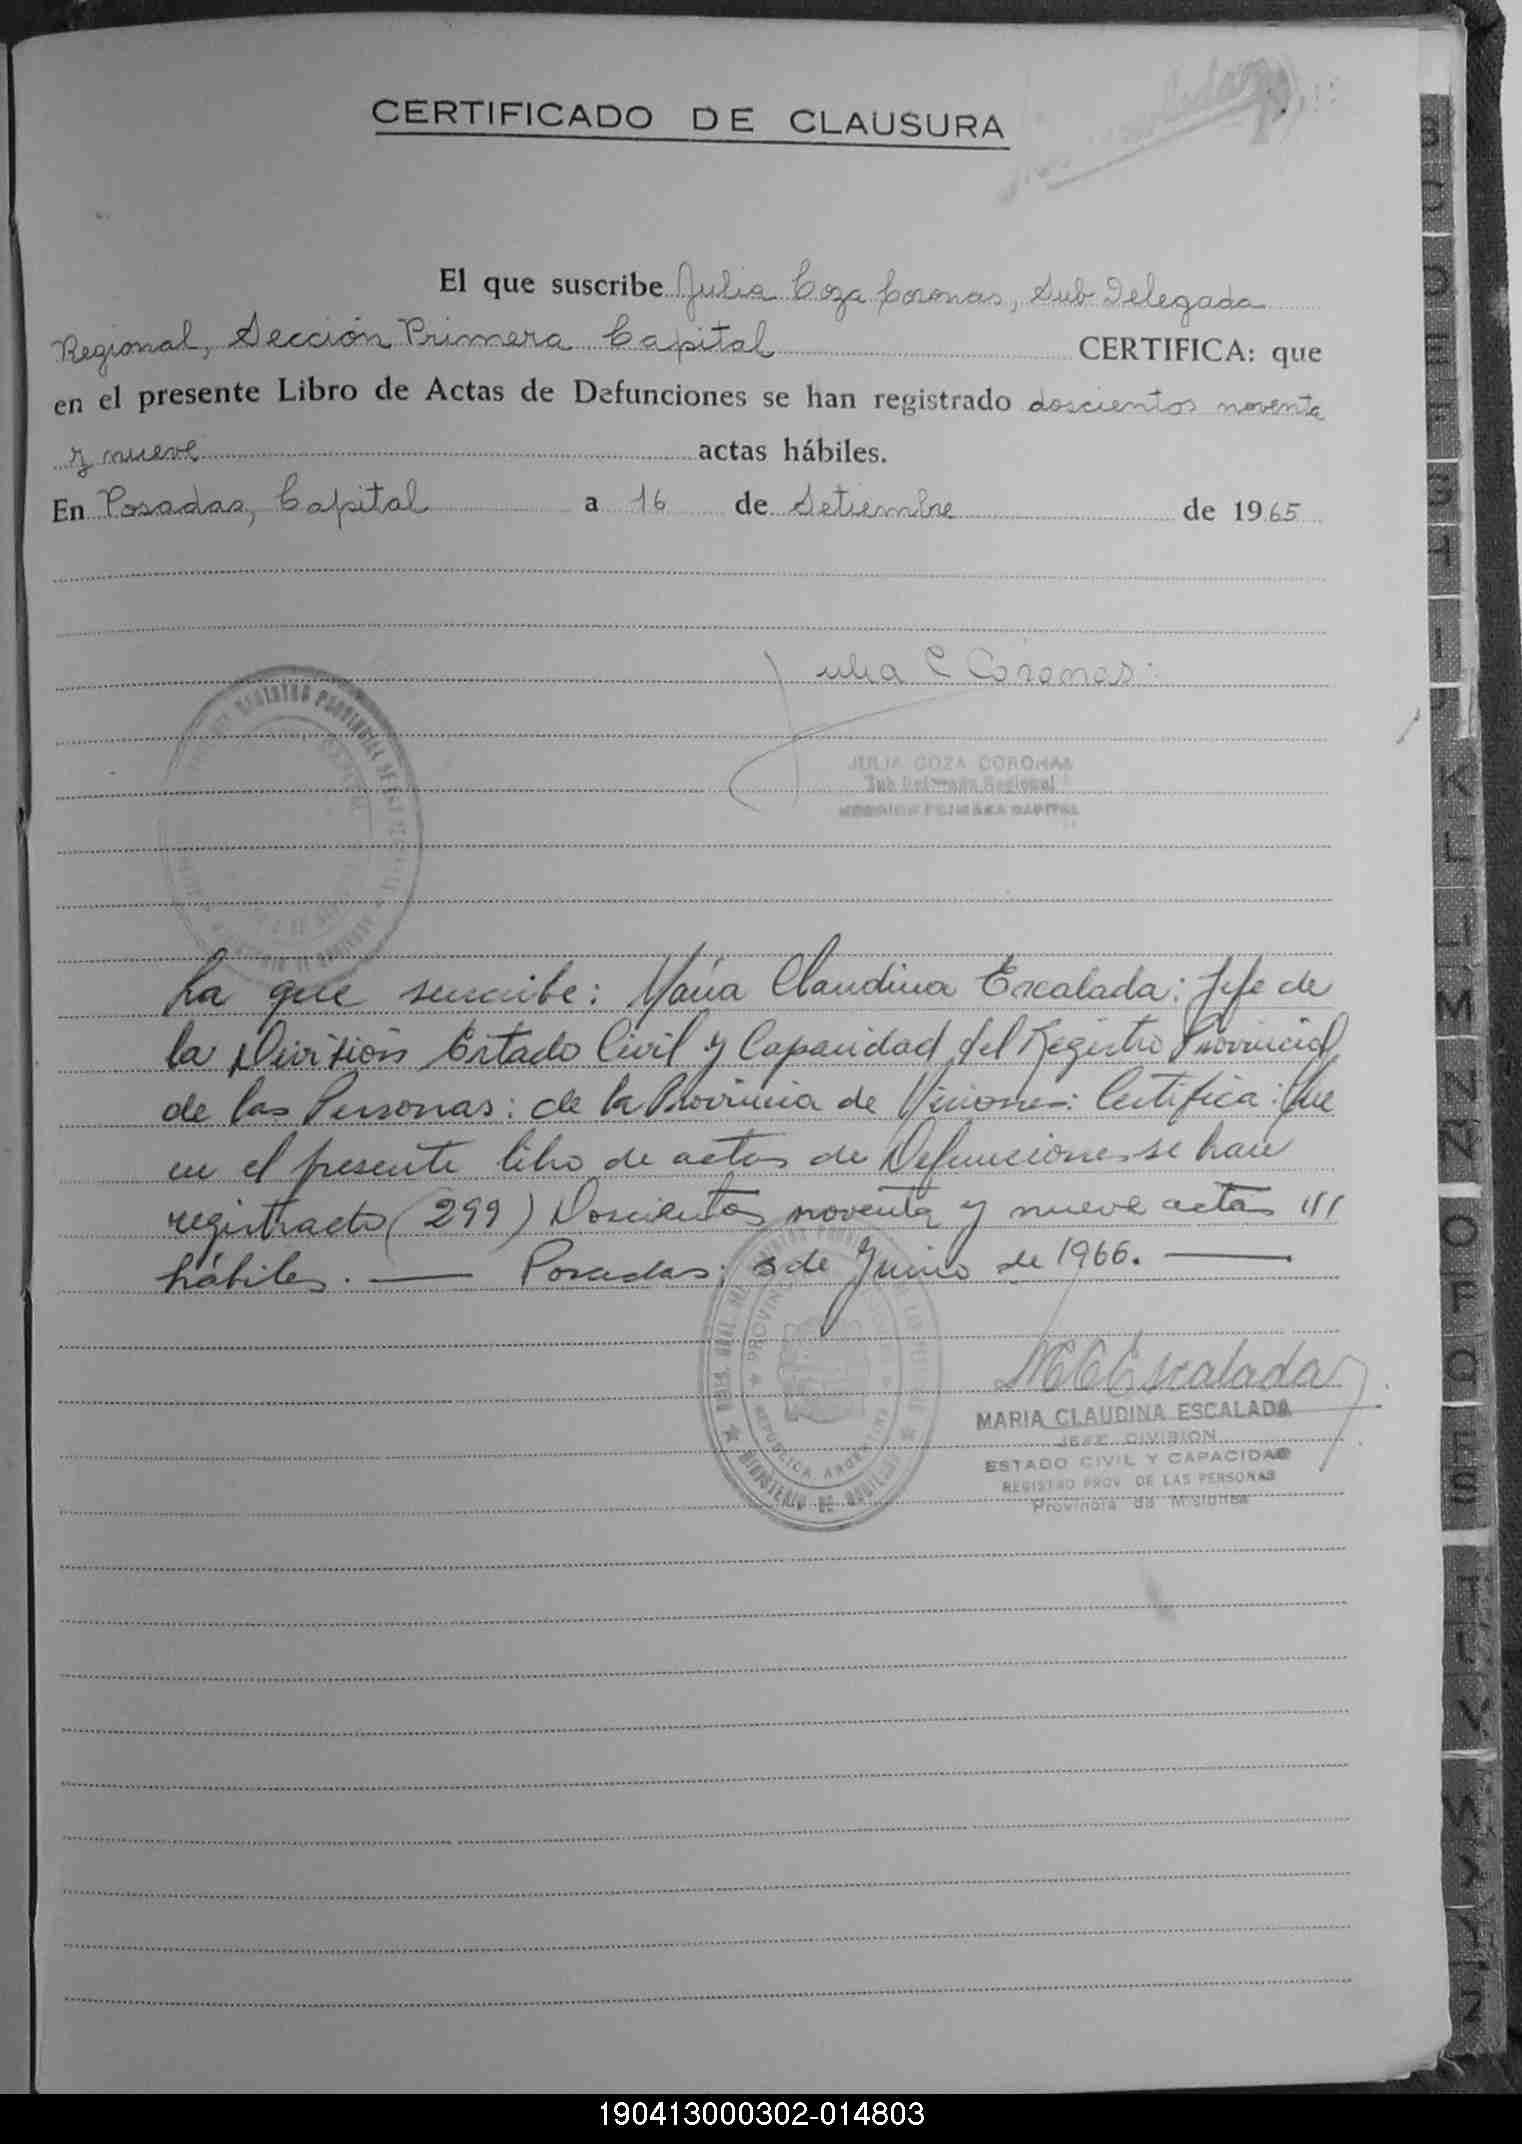 CERTIFICADO DE CLAUSURA
El que suscribe Julia Coza Coronas, Sub Delegada
Regional, Sección Primera Capital CERTIFICA: que
en el presente Libro de Actas de Defunciones se han registrado doscientos noventa
y nueve actas hábiles.
En Posadas, Capital a 16 de Setiembre de 1965
Julia C Coronas
JULIA COZA CORONAS
Sub Delegada Regional
SECCION PRIMERA CAPITAL
La que suscribe: María Claudina Escalada: Jefe de
la División Estado Civil y Capacidad del Registro Provincial
de las Personas: de la Provincia de Misiones: Certifica: Que
en el presente libro de actas de Defunciones se han
registrado (299) Doscientos noventa y nueve actas ///
hábiles. — Posadas; de Junio de 1966. —
PROVINCIA
REPUBLICA ARGENTINA
MINISTERIO DE
MCEscalada
MARIA CLAUDINA ESCALADA
JEFE DIVISION
ESTADO CIVIL Y CAPACIDAD
REGISTRO PROV. DE LAS PERSONAS
Provincia de Misiones
190413000302-014803